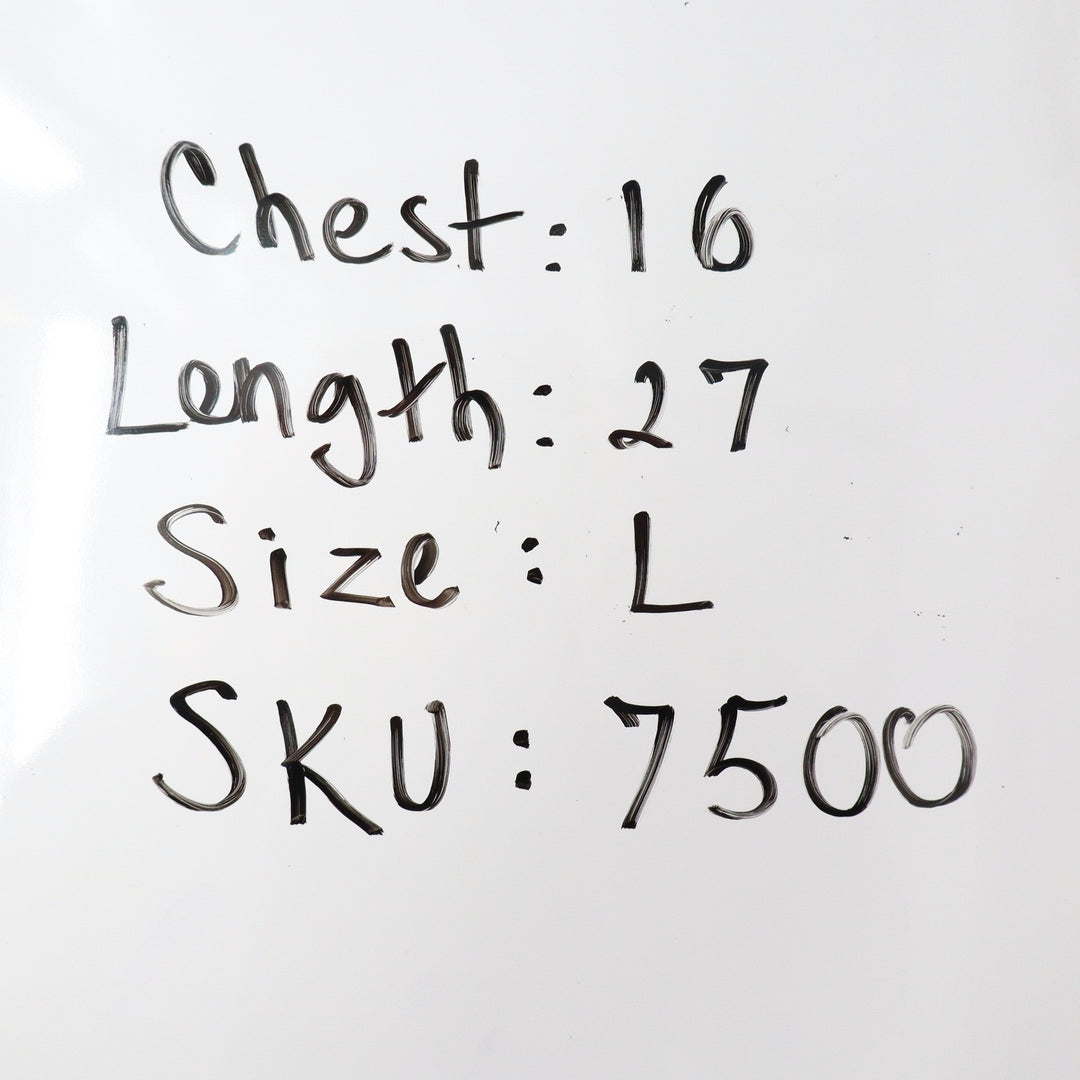 Chest: 16
Length: 27
Size: L
SKU: 7500